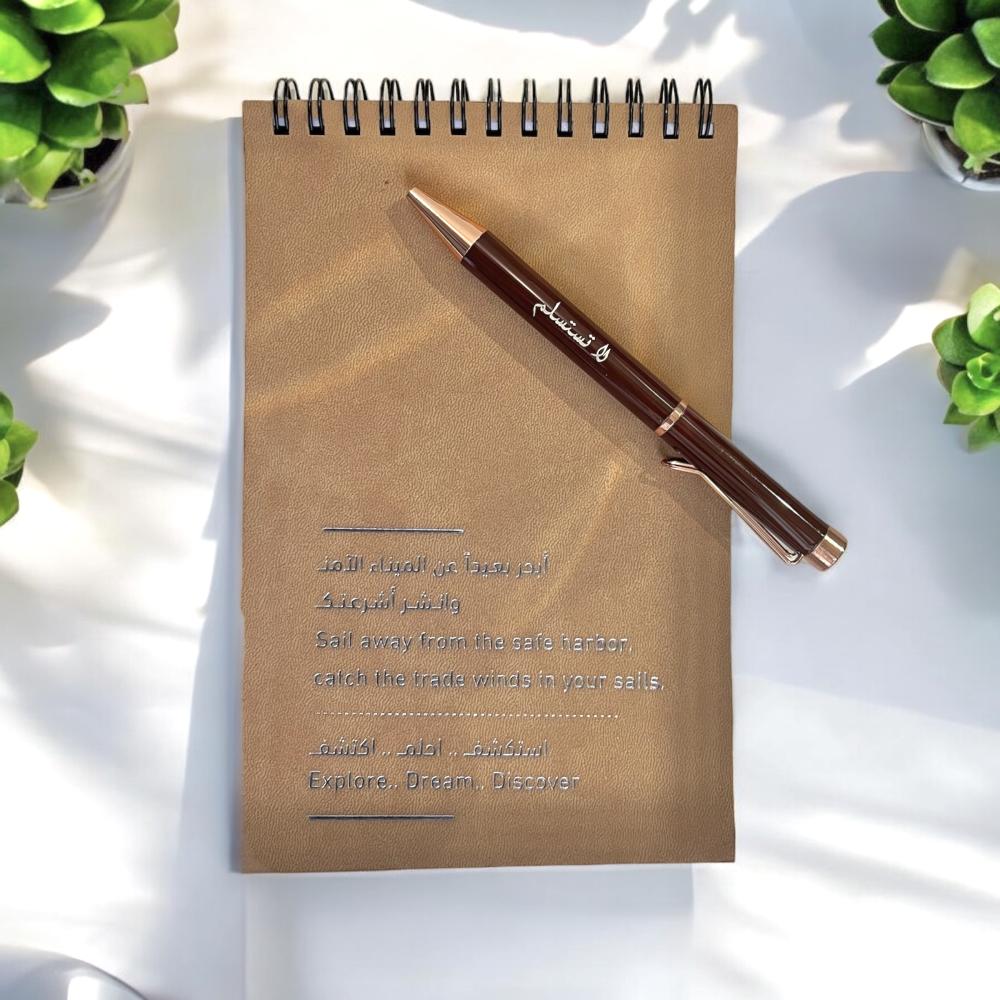 لا تستسلم
أبحر بعيداً عن الميناء الآمن
وانشر أشرعتك
Sail away from the safe harbor,
catch the trade winds in your sails.
استكشف .. احلم .. اكتشف
Explore.. Dream.. Discover